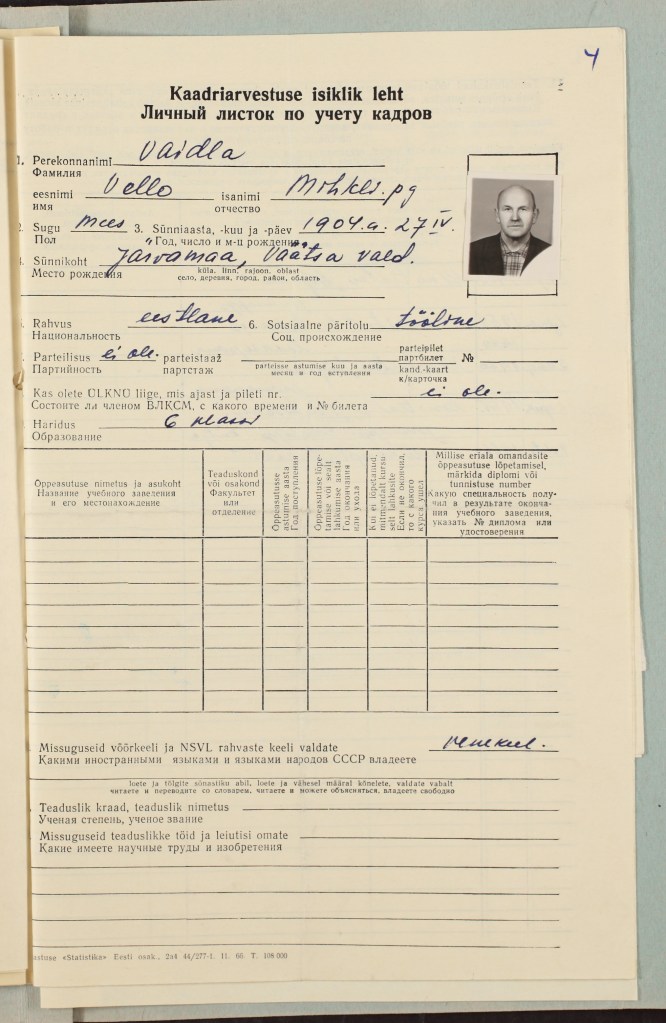 4
Kaadriarvestuse isiklik leht
Личный листок по учету кадров
1. Perekonnanimi Vaidla
Фамилия
eesnimi Vello isanimi Mihkli pg
имя отчество
2. Sugu mees 3. Sünniaasta, -kuu ja -päev 1904.a. 27 IV.
Пол Год, число и м-ц рождения
4. Sünnikoht Järvamaa, Väätsa vald.
Место рождения küla, linn, rajoon, oblast
село, деревня, город, район, область
Rahvus eestlane 6. Sotsiaalne päritolu tööline
Национальность Соц. происхождение
Parteilisus ei ole. parteistaaž parteipilet №
Партийность партстаж parteisse astumise kuu ja aasta партбилет
месяц и год вступления kand.-kaart
к/карточка
Kas olete ÜLKNÜ liige, mis ajast ja pileti nr. ei ole.
Состоите ли членом ВЛКСМ, с какого времени и № билета
Haridus 6 klassi
Образование
Õppeasutuse nimetus ja asukoht
Название учебного заведения
и его местонахождение
Teaduskond
või osakond
Факультет
или
отделение
Õppeasutusse
astumise aasta
Год поступления
Õppeasutuse lõpe-
tamise või sealt
lahkumise aasta
Год окончания
или ухода
Kui ei lõpetanud,
mitmendalt kursu-
selt lahkusite
Если не окончил,
то с какого
курса ушел
Millise eriala omandasite
õppeasutuse lõpetamisel,
märkida diplomi või
tunnistuse number
Какую специальность полу-
чил в результате оконча-
ния учебного заведения,
указать № диплома или
удостоверения
Missuguseid võõrkeeli ja NSVL rahvaste keeli valdate
Какими иностранными языками и языками народов СССР владеете
loete ja tõlgite sõnastiku abil, loete ja vähesel määral kõnelete, valdate vabalt
читаете и переводите со словарем, читаете и можете объясняться, владеете свободно
Teaduslik kraad, teaduslik nimetus
Ученая степень, ученое звание
Missuguseid teaduslikke töid ja leiutisi omate
Какие имеете научные труды и изобретения
«Statistika» Eesti osak., 2a4 44/277-1. 11. 66. T. 108 000